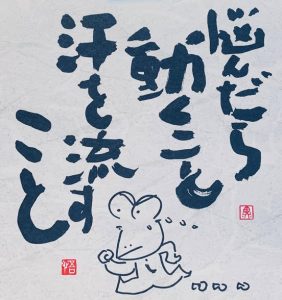 悩んだら
動くこと
汗を流す
こと